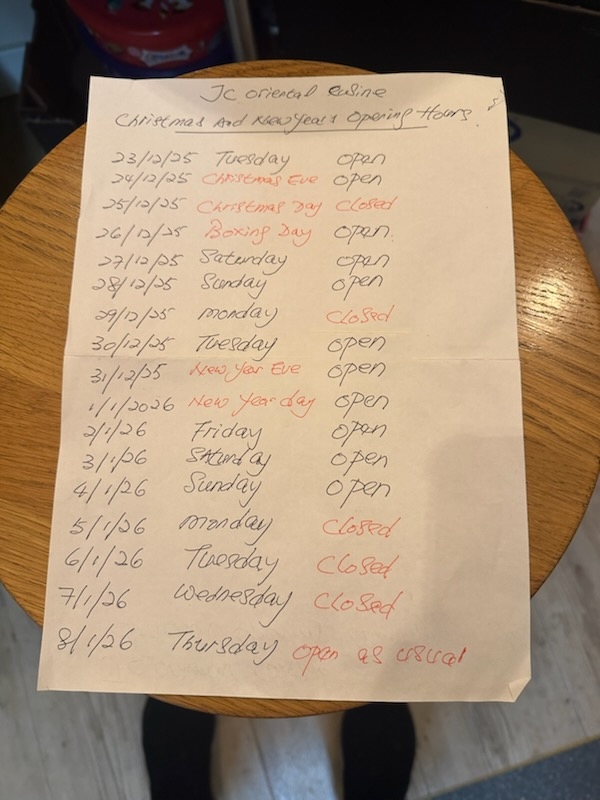 JC Oriental Cusine
Christmas And New Year's Opening Hours.
23/12/25 Tuesday open
24/12/25 Christmas Eve open
25/12/25 Christmas Day Closed
26/12/25 Boxing Day open.
27/12/25 Saturday open
28/12/25 Sunday open
29/12/25 monday Closed
30/12/25 Tuesday open
31/12/25 New Year Eve open
1/1/2026 New Year day open
2/1/26 Friday open
3/1/26 Saturday open
4/1/26 Sunday open
5/1/26 monday Closed
6/1/26 Tuesday Closed
7/1/26 Wednesday Closed
8/1/26 Thursday open as usual